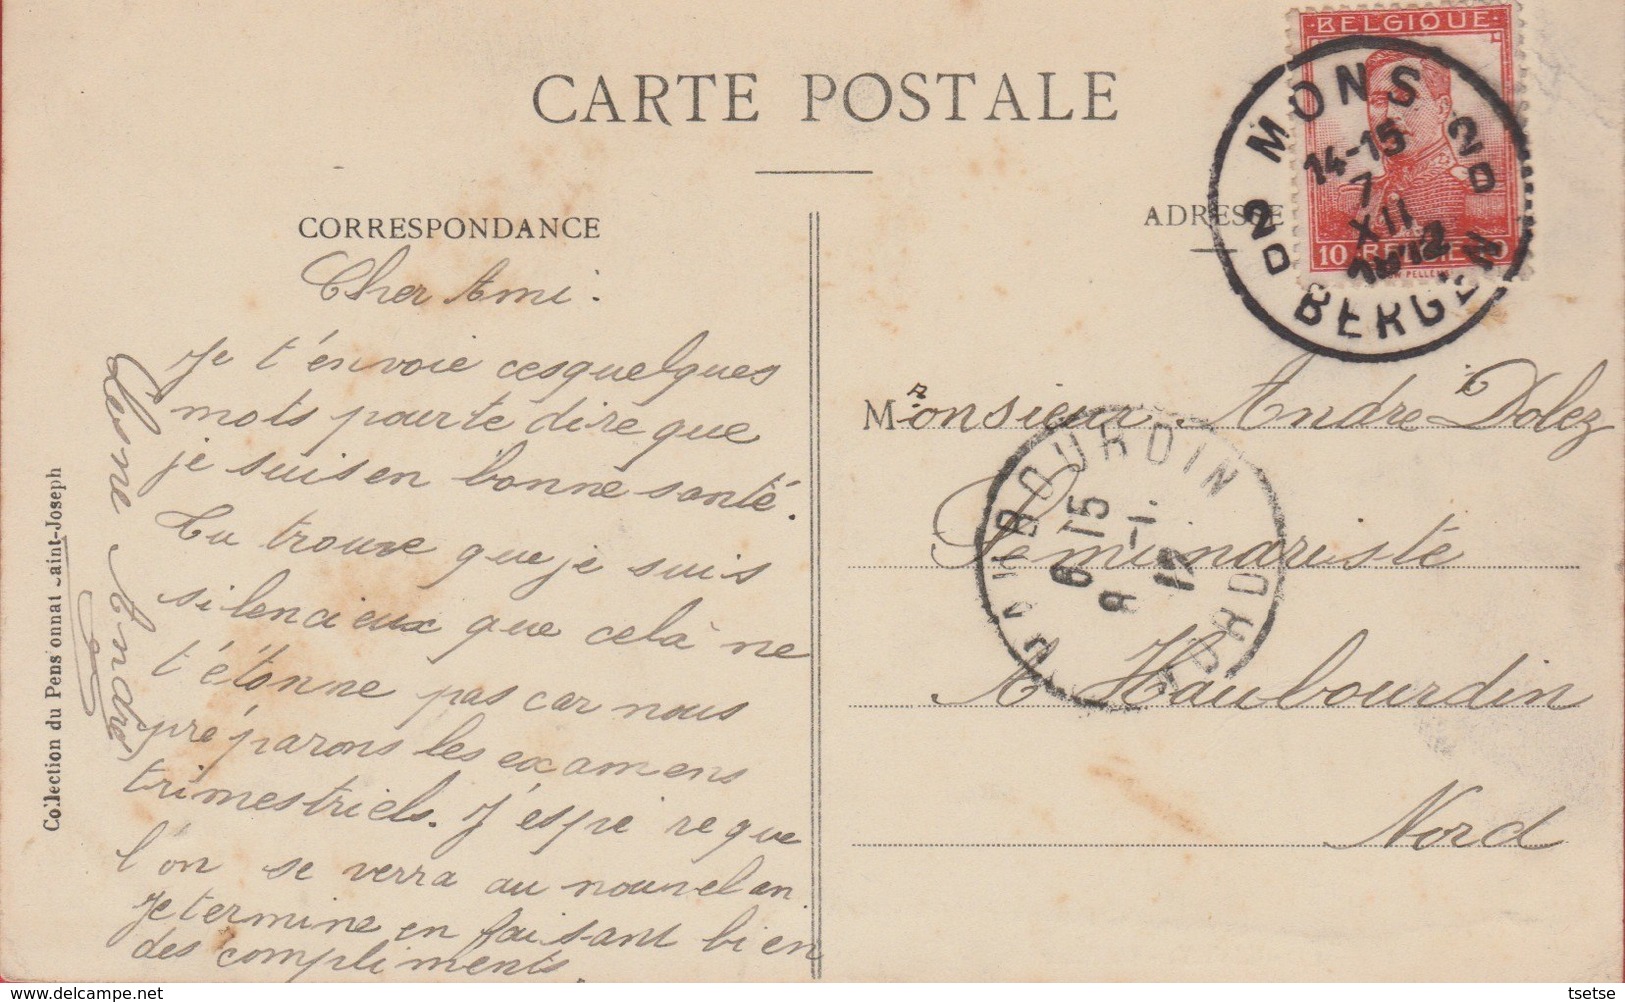 CARTE POSTALE
CORRESPONDANCE
Cher Ami.
Je t'envoie ces quelques
mots pour te dire que
je suis en bonne santé.
Tu trouve que je suis
silencieux que celà ne
t'étonne pas car nous
préparons les examens
trimestriels. J'espè re que
l'on se verra au nouvel an.
Je termine en faisant bien
des compliments.
Lesne André
Collection du Pens onnat aint-Joseph
ADRESSE
Monsieur André Dolez
Séminariste
A Haubourdin
Nord
BELGIQUE
10 BELGIE 10
MONS 2D
14-15
7
XII
1912
2D BERGEN
HAUBOURDIN
6 15
NORD
tsetse